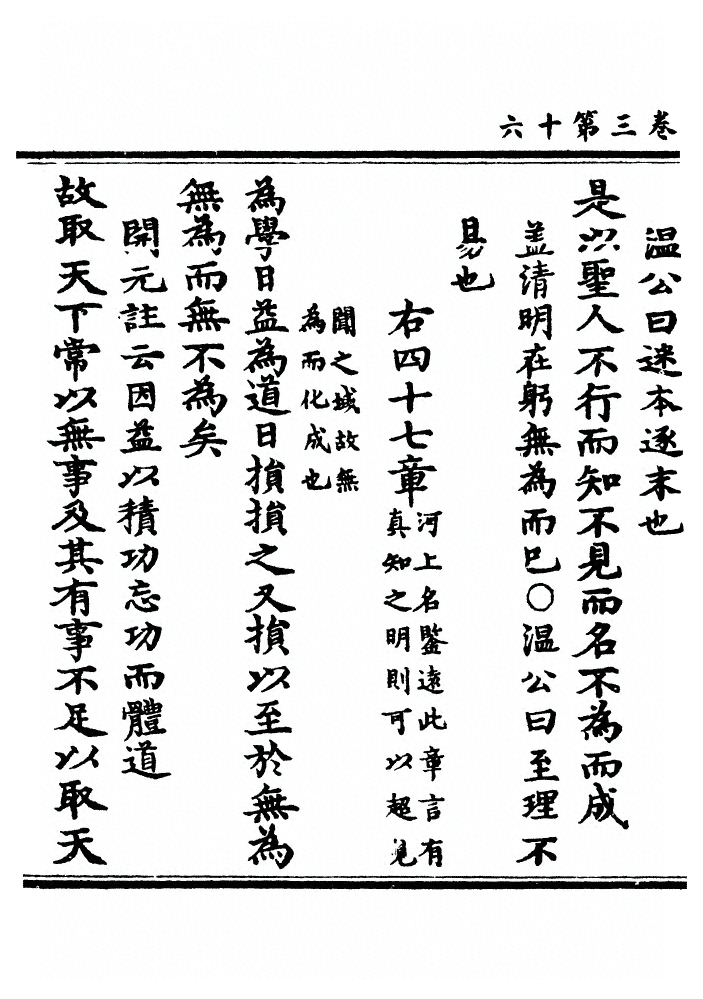 卷三第十六
溫公曰迷本逐末也
是以聖人不行而知不見而名不為而成
蓋清明在躬無為而已○溫公曰至理不
易也
右四十七章
河上名鑒遠此章言有
真知之明則可以超見
聞之域故無
為而化成也
為學日益為道日損損之又損以至於無為
無為而無不為矣
開元註云因益以積功忘功而體道
故取天下常以無事及其有事不足以取天